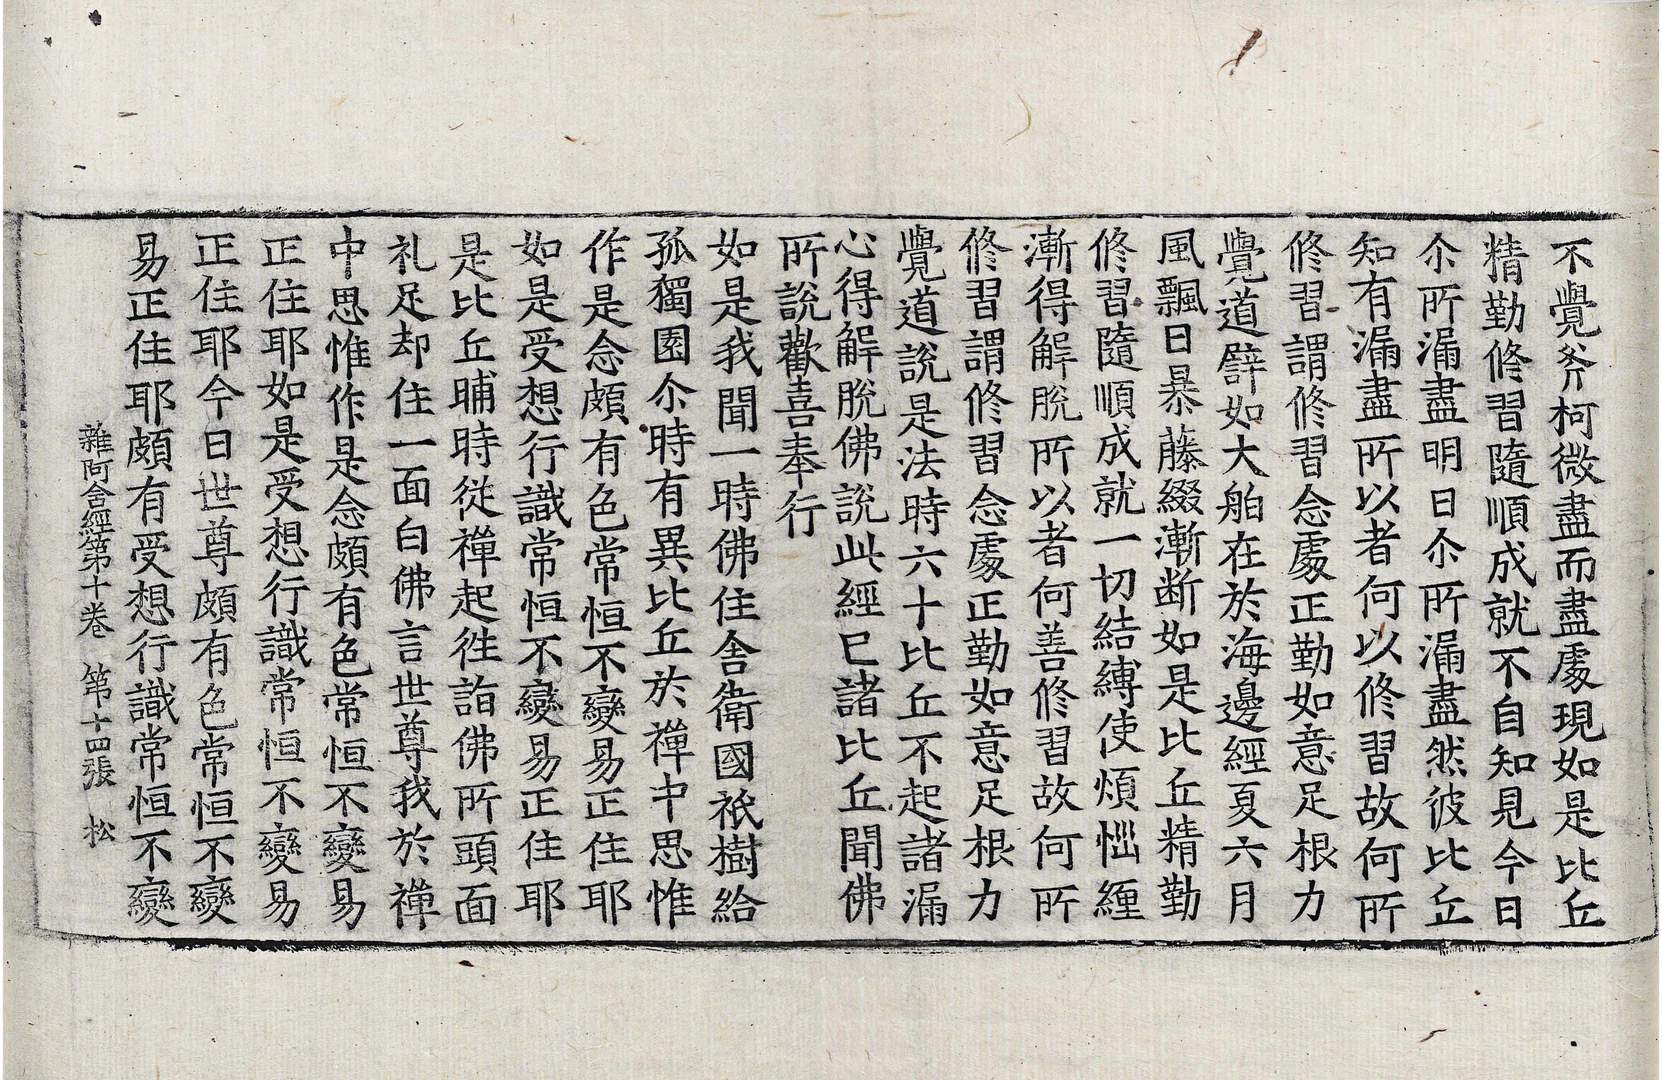 不覺斧柯微盡而盡處現如是比丘
精勤修習隨順成就不自知見今日
尒所漏盡明日尒所漏盡然彼比丘
知有漏盡所以者何以修習故何所
修習謂修習念處正勤如意足根力
覺道譬如大舶在於海邊經夏六月
風飄日暴藤綴漸断如是比丘精勤
修習隨順成就一切結縛使煩惱纒
漸得解脫所以者何善修習故何所
修習謂修習念處正勤如意足根力
覺道說是法時六十比丘不起諸漏
心得解脫佛說此經已諸比丘聞佛
所說歡喜奉行
如是我聞一時佛住舍衛國祇樹給
孤獨園尒時有異比丘於禪中思惟
作是念頗有色常恒不變易正住耶
如是受想行識常恒不變易正住耶
是比丘晡時從禪起徃詣佛所頭面
礼足却住一面白佛言世尊我於禪
中思惟作是念頗有色常恒不變易
正住耶如是受想行識常恒不變易
正住耶今日世尊頗有色常恒不變
易正住耶頗有受想行識常恒不變
雜阿含經第十卷 第十四張 松